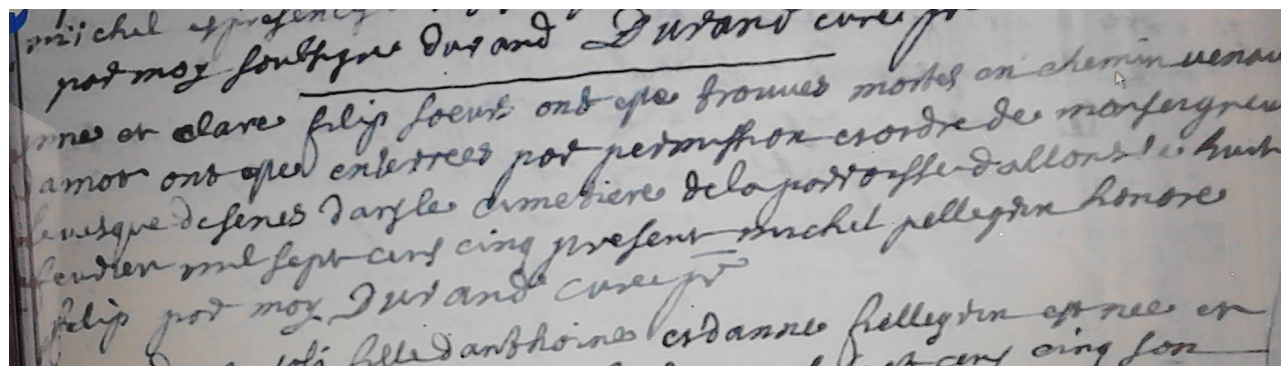 michel
par moy soubsigne durand Durand cure
anne et clare filip soeurs ont este trouves mortes en chemin venan
lamor ont estes enterrees par permission et ordre de monseigneu
levesque de senes dans le cimetiere de la parroisse dallons le huit
feuvrier mil sept cens cinq present michel pellegrin honore
filip par moy Durand cure ptre
fille danthoine et danne pellegrin est nee et
cens cinq son